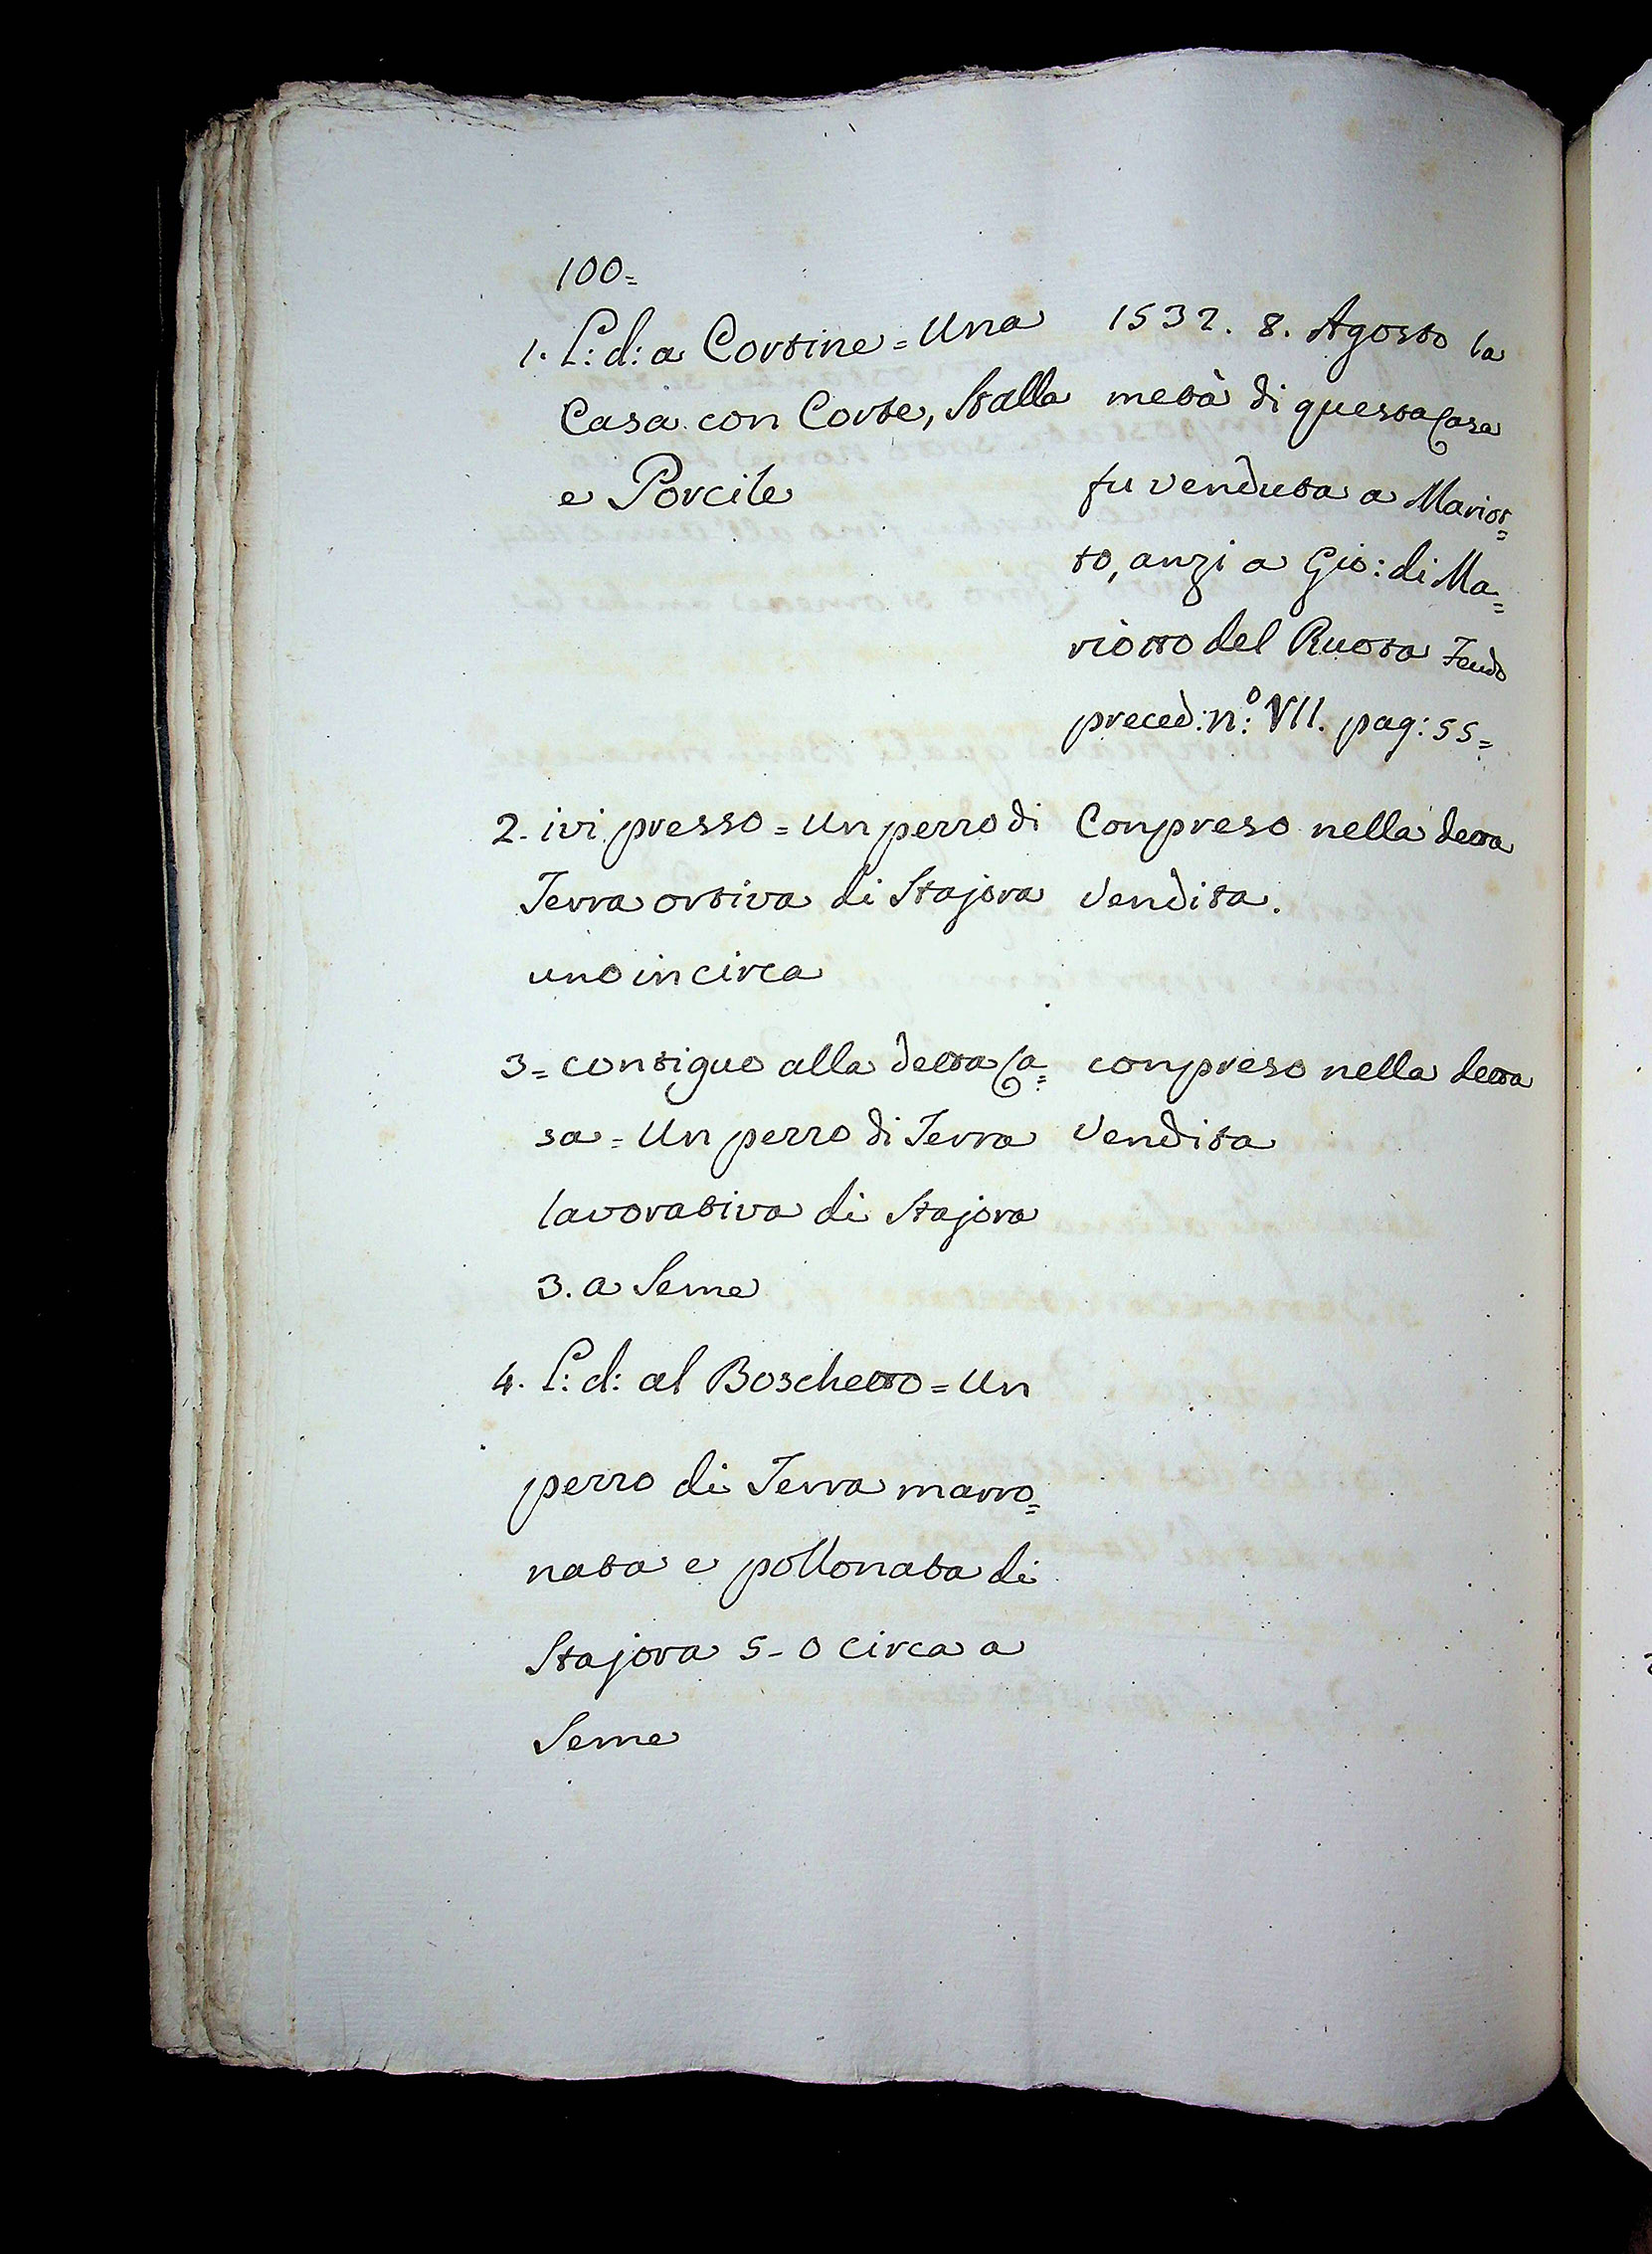 100=
1. L: d: a Cortine = Una
Casa con Corte, Stalla
e Porcile
1532. 8. Agosto la
metà di questa Casa
fu venduta a Mariot=
to, anzi a Gio: di Ma=
riotto del Ruota
preced: n.º VII. pag: 55=
2. ivi presso = Un pezzo di
Terra ortiva di Stajora
uno in circa
Conpreso nella detta
Vendita.
3= contiguo alla detta Ca=
sa = Un pezzo di Terra
lavorativa di Stajora
3. a Seme
conpreso nella detta
Vendita
4. L: d: al Boschetto = Un
pezzo di Terra marro=
nata e pollonata di
Stajora 5-0 circa a
Seme